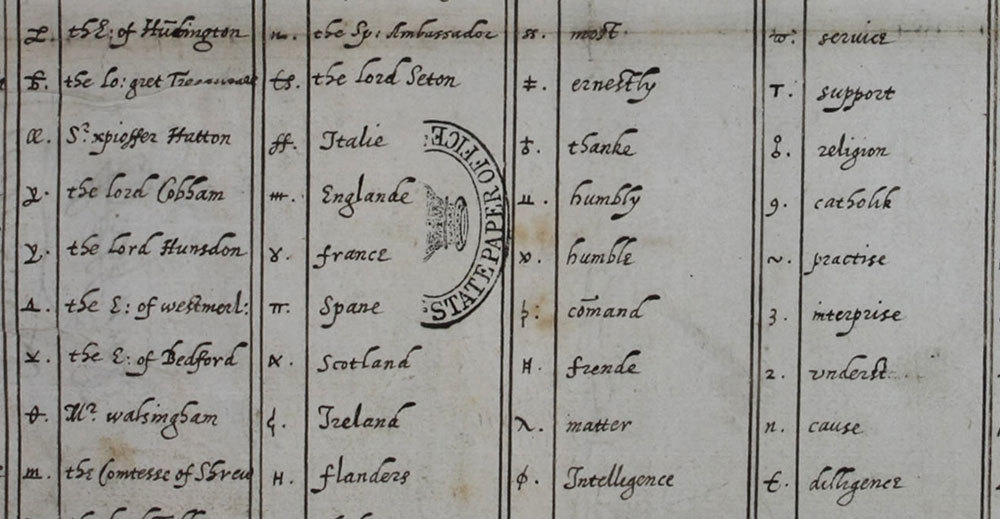 the E: of Huntington
the Sp: Ambassador
most
service
the lo: gret
the lord Seton
ernestly
support
Sr xpioffer Hatton
Italie
thanke
religion
the lord Cobham
Englande
humbly
catholik
the lord Hunsdon
france
humble
practise
the E: of westmorl:
Spane
cōmand
interprise
the E: of Bedford
Scotland
frende
vnderst
Mr walsingham
Ireland
matter
cause
the Comtesse of Shrew
flanders
Intelligence
dilligence
STATE PAPER OFFICE